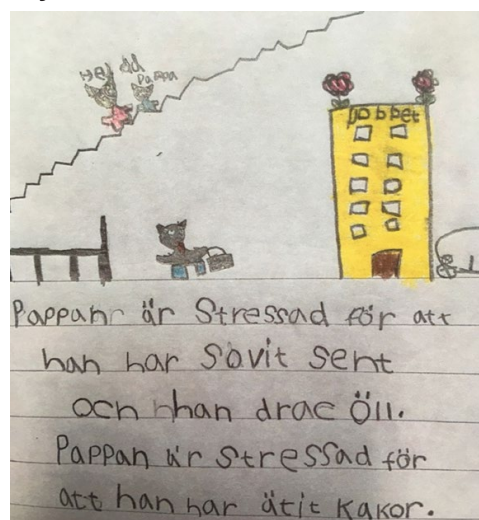 Hej då
Pappa
Jobbet
Pappan är Stressad för att
han har Sovit Sent
och han drac Öll.
Pappan är Stressad för
att han har ätit Kakor.